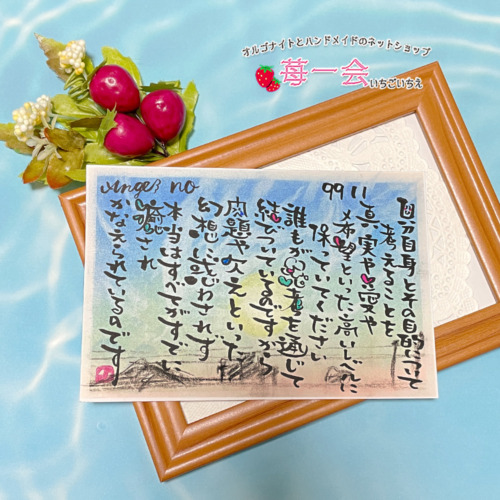 オルゴナイトとハンドメイドのネットショップ
苺一会 いちごいちえ
Angel no 9911
自分自身とその目的について
考えることを
真実や愛や
希望といった高いレベルに
保っていてください
誰もが思考を通じて
結びついているのですから
問題や欠如といった
幻想に惑わされず
本当はすべてがすでに
癒され
かなえられているのです